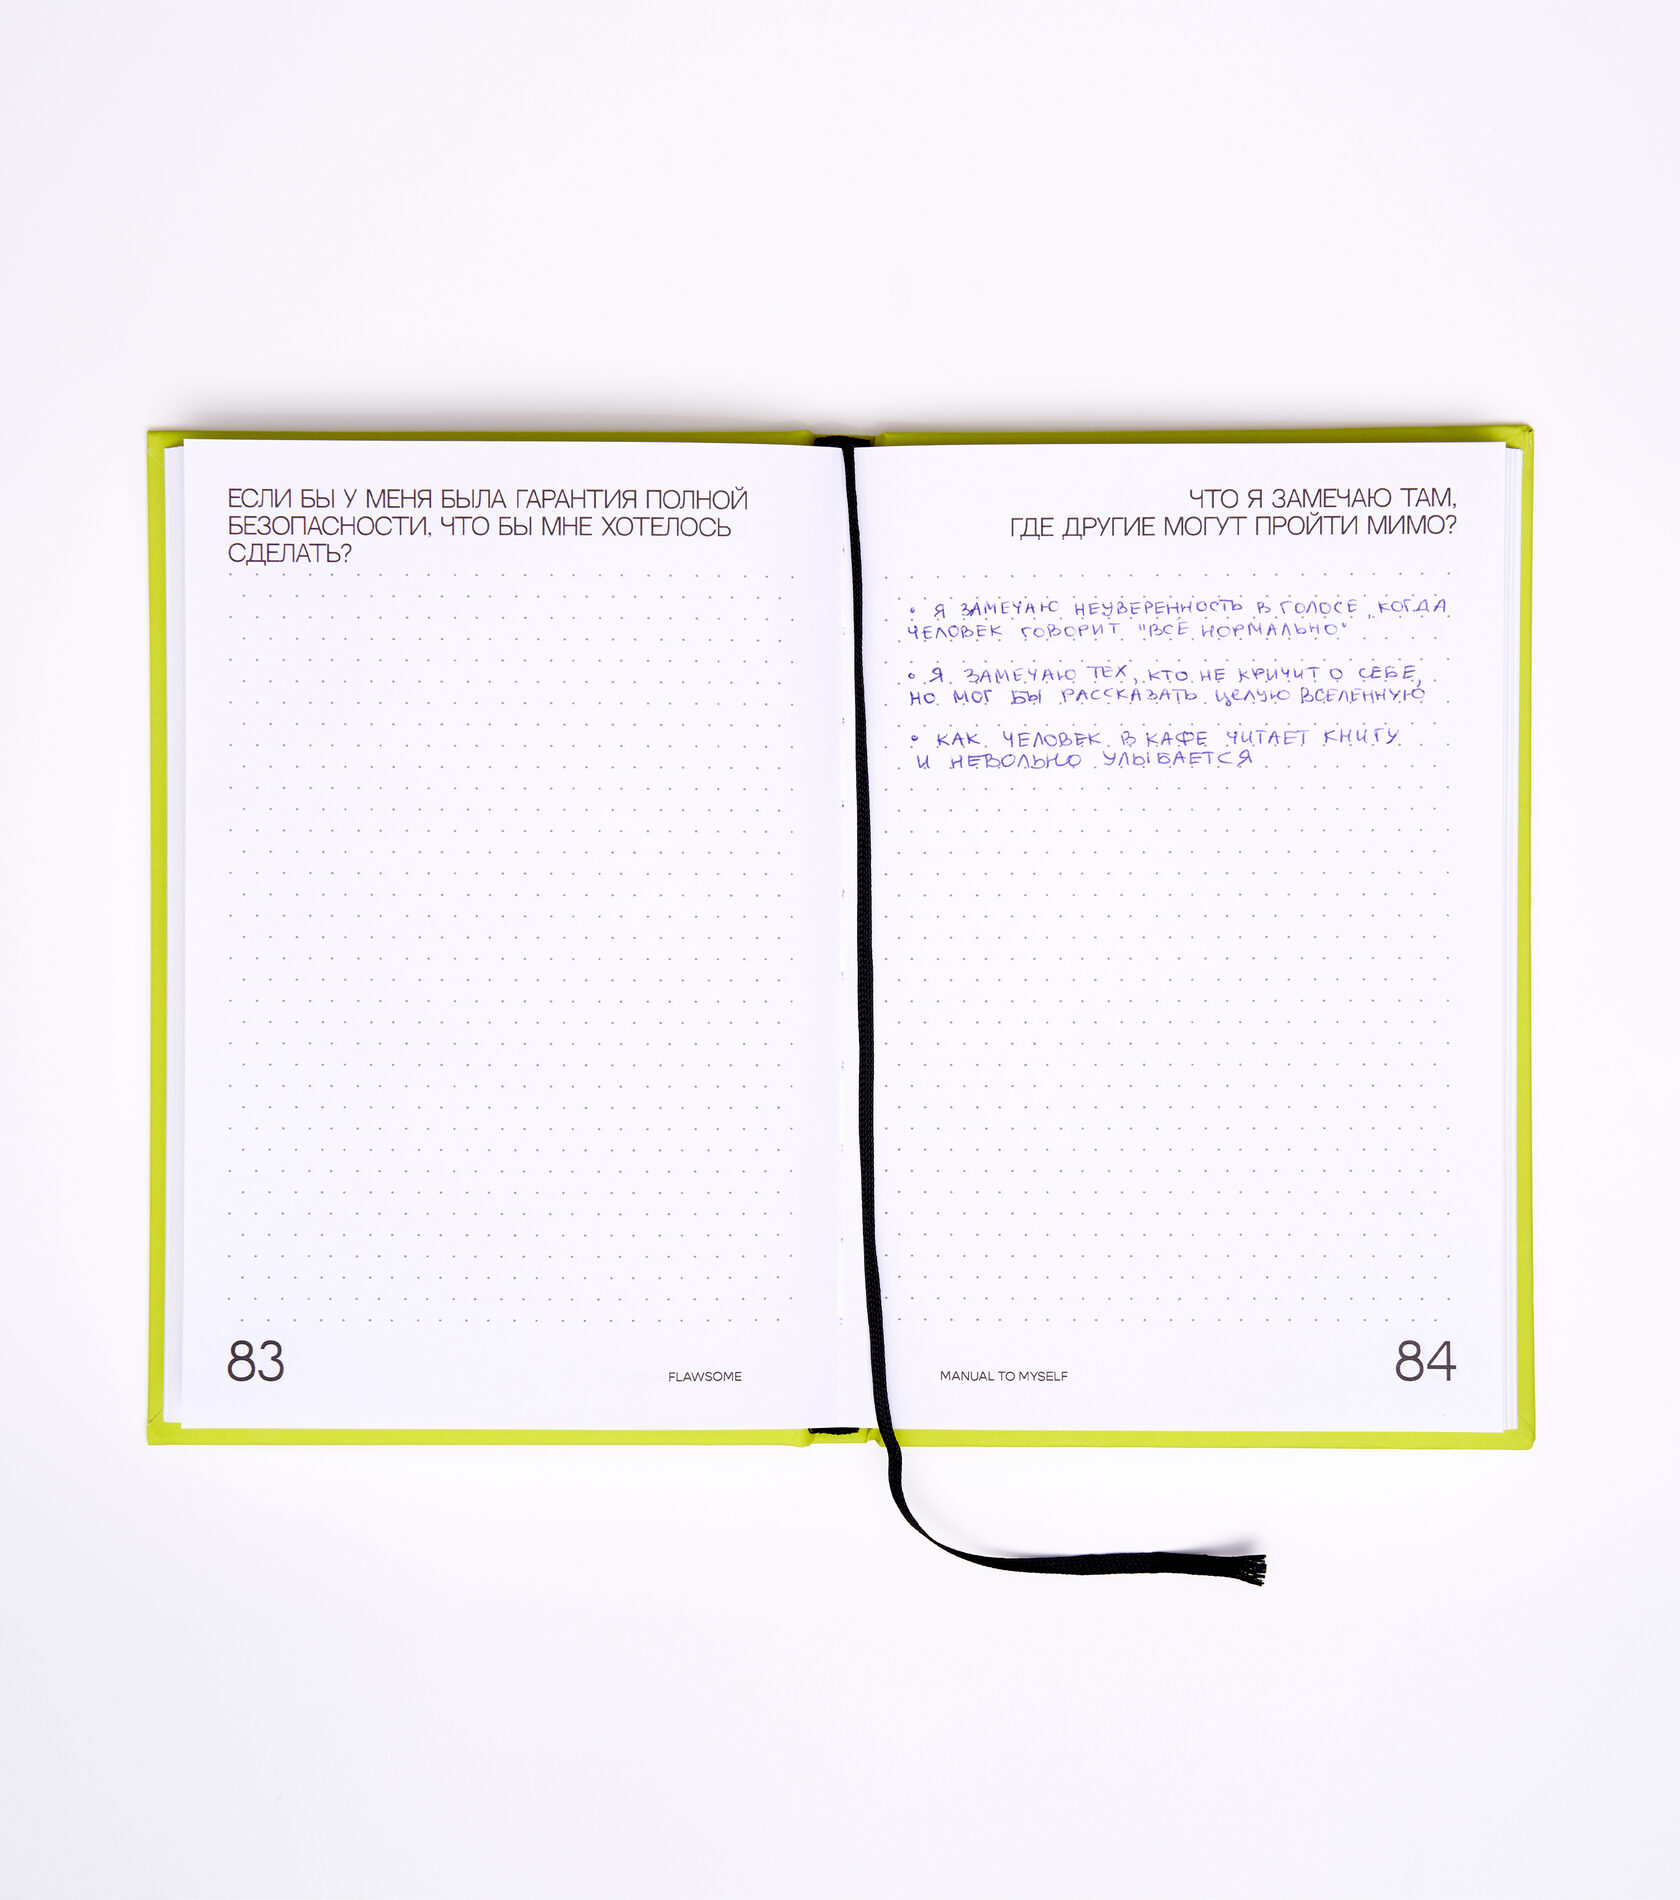 ЕСЛИ БЫ У МЕНЯ БЫЛА ГАРАНТИЯ ПОЛНОЙ
БЕЗОПАСНОСТИ, ЧТО БЫ МНЕ ХОТЕЛОСЬ
СДЕЛАТЬ?
83
FLAWSOME
ЧТО Я ЗАМЕЧАЮ ТАМ,
ГДЕ ДРУГИЕ МОГУТ ПРОЙТИ МИМО?
• Я ЗАМЕЧАЮ НЕУВЕРЕННОСТЬ В ГОЛОСЕ, КОГДА
ЧЕЛОВЕК ГОВОРИТ "ВСЁ НОРМАЛЬНО"
• Я ЗАМЕЧАЮ ТЕХ, КТО НЕ КРИЧИТ О СЕБЕ,
НО МОГ БЫ РАССКАЗАТЬ ЦЕЛУЮ ВСЕЛЕННУЮ
• КАК ЧЕЛОВЕК В КАФЕ ЧИТАЕТ КНИГУ
И НЕВОЛЬНО УЛЫБАЕТСЯ
MANUAL TO MYSELF
84